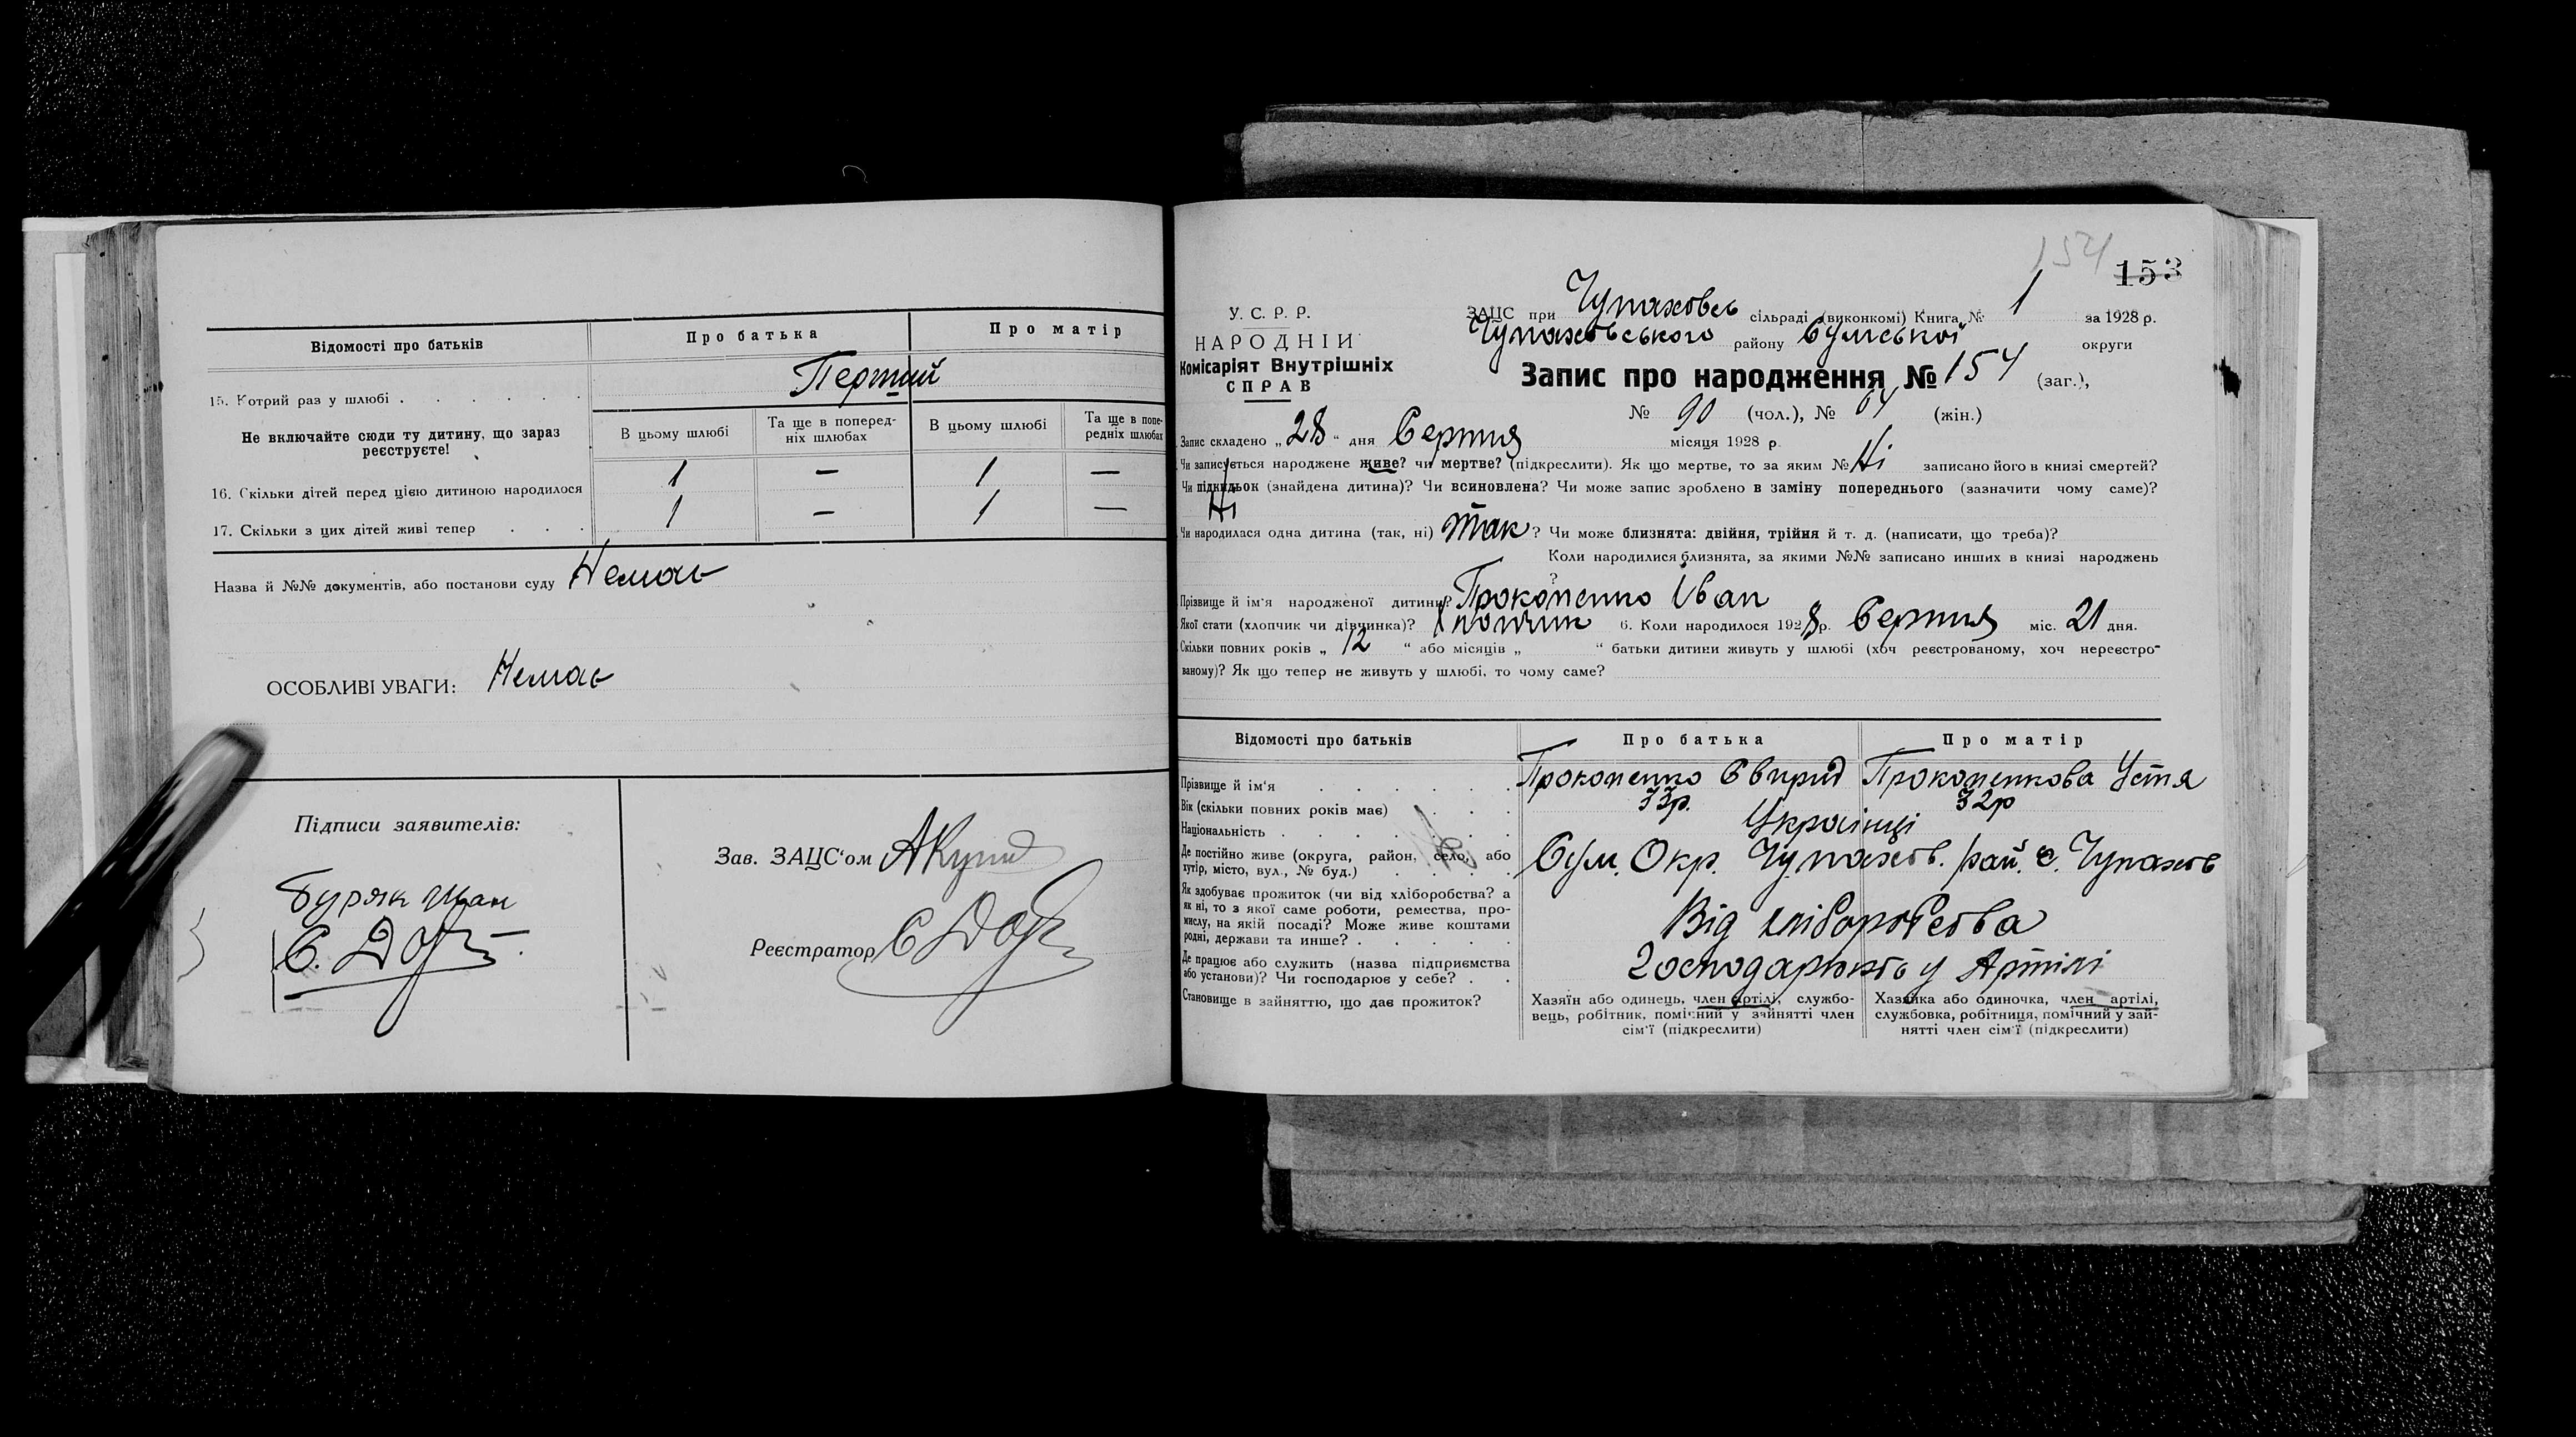 Відомості про батьків
Про батька
Про матір
15. Котрий раз у шлюбі
Перший
Не включайте сюди ту дитину, що зараз реєструєте!
В цьому шлюбі
Та ще в поперед-
ніх шлюбах
В цьому шлюбі
Та ще в попе-
редніх шлюбах
16. Скільки дітей перед цією дитиною народилося 1 — 1 —
17. Скільки з цих дітей живі тепер . . . 1 — 1 —
Назва й №№ документів, або постанови суду Немає
ОСОБЛИВІ УВАГИ: Немає
Підписи заявителів:
Буряк Иван
Зав. ЗАЦС'ом
Реєстратор
154
153
У. С. Р. Р.
НАРОДНІЙ
Комісаріят Внутрішніх
СПРАВ
ЗАЦС при Чупаховсь сільраді (виконкомі) Книга № 1 за 1928 р.
Чупаховського району Сумської округи
Запис про народження № 154 (заг.),
№ 90 (чол.), № 64 (жін.)
Запис складено „ 28 “ дня Серпня місяця 1928 р.
Чи записується народжене живе? чи мертве? (підкреслити). Як що мертве, то за яким № Ні записано його в книзі смертей?
Чи підкидьок (знайдена дитина)? Чи всиновлена? Чи може запис зроблено в заміну попереднього (зазначити чому саме)?
Ні
Чи народилася одна дитина (так, ні) так ? Чи може близнята: двійня, трійня й т. д. (написати, що треба)?
Коли народилися близнята, за якими №№ записано инших в книзі народжень
?
Прізвище й ім'я народженої дитини? Прокопенко Іван
Якої стати (хлопчик чи дівчинка)? Хлопчик 6. Коли народилося 1928 р. Серпня міс. 21 дня.
Скільки повних років „ 12 “ або місяців „ “ батьки дитини живуть у шлюбі (хоч реєстрованому, хоч нереєстро-
ваному)? Як що тепер не живуть у шлюбі, то чому саме?
Відомості про батьків
Про батька
Про матір
Прізвище й ім'я . . . . . . Прокопенко Свирид Прокопенкова Устя
Вік (скільки повних років має) . . . 33р. 32р
Національність . . . . . . . Українці
Де постійно живе (округа, район, село, або
хутір, місто, вул., № буд.) . . . .
Сум. Окр. Чупахов. рай. с. Чупахов
Як здобуває прожиток (чи від хліборобства? а
як ні, то з якої саме роботи, ремества, про-
мислу, на якій посаді? Може живе коштами
родні, держави та инше? . . . . .
Від хліборобства
Де працює або служить (назва підприємства
або установи)? Чи господарює у себе? . .
Господарюють у Артілі
Становище в зайняттю, що дає прожиток?
Хазяїн або одинець, член артілі, службо-
вець, робітник, помічний у зайнятті член
сім'ї (підкреслити)
Хазяйка або одиночка, член артілі,
службовка, робітниця, помічний у зай-
нятті член сім'ї (підкреслити)